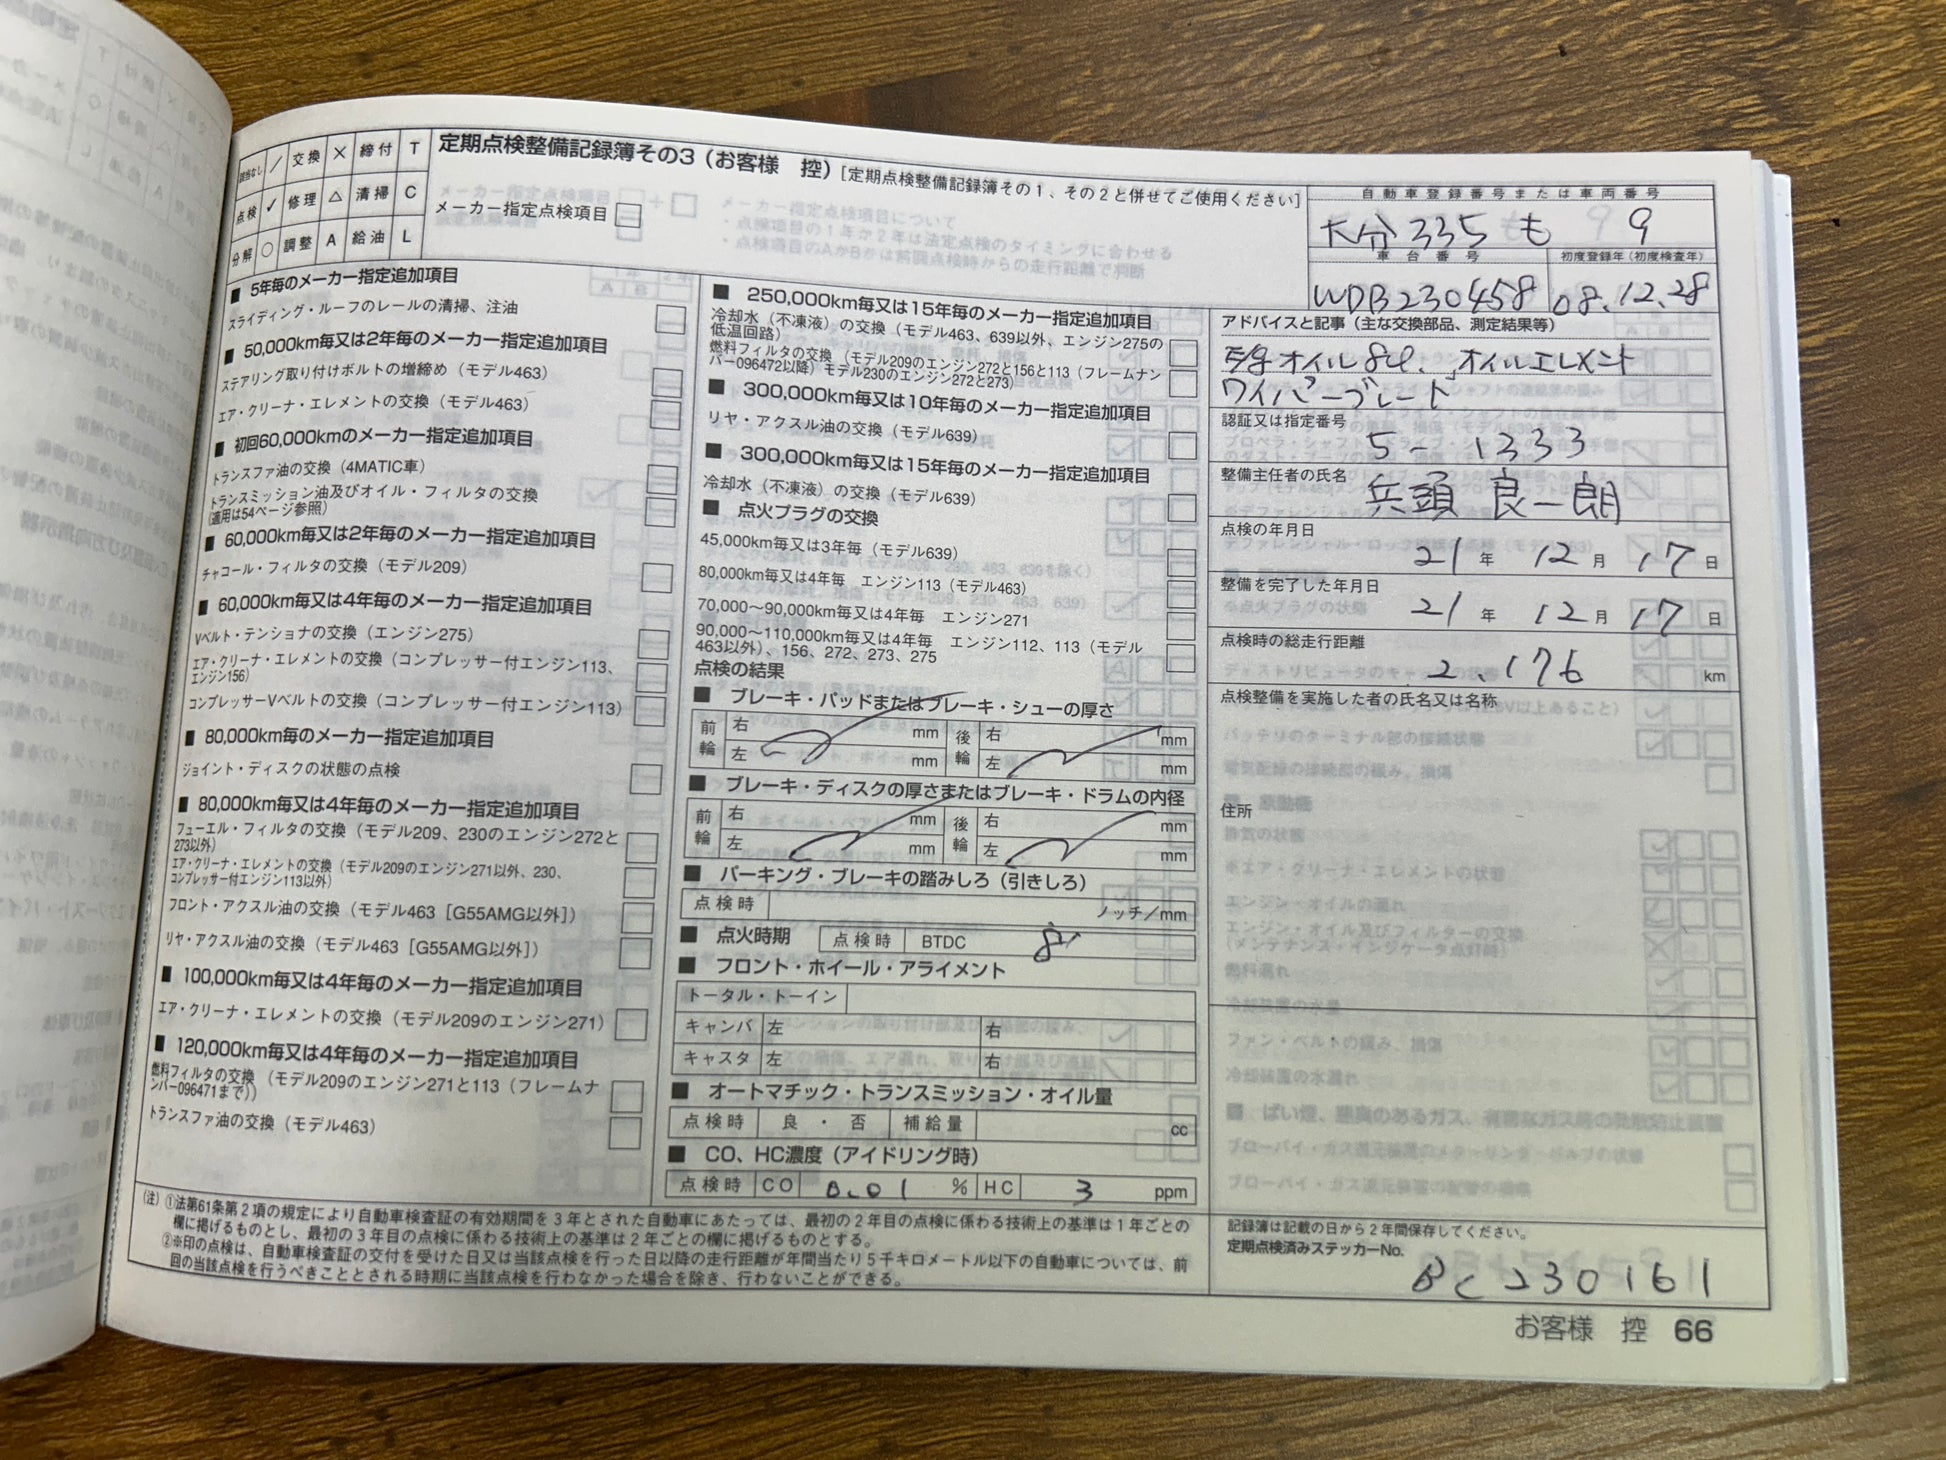 定期点検整備記録簿その3（お客様　控）［定期点検整備記録簿その1、その2と併せてご使用ください］
該当なし ／ 交換 × 締付 T
点検 ✓ 修理 △ 清掃 C
分解 ○ 調整 A 給油 L
メーカー指定点検項目 □
自動車登録番号または車両番号
大分 335 も 9
車台番号 初度登録年（初度検査年）
WDB230458 08.12.28
■ 5年毎のメーカー指定追加項目
スライディング・ルーフのレールの清掃、注油
■ 50,000km毎又は2年毎のメーカー指定追加項目
ステアリング取り付けボルトの増締め（モデル463）
エア・クリーナ・エレメントの交換（モデル463）
■ 初回60,000kmのメーカー指定追加項目
トランスファ油の交換（4MATIC車）
トランスミッション油及びオイル・フィルタの交換
（適用は54ページ参照）
■ 60,000km毎又は2年毎のメーカー指定追加項目
チャコール・フィルタの交換（モデル209）
■ 60,000km毎又は4年毎のメーカー指定追加項目
Vベルト・テンショナの交換（エンジン275）
エア・クリーナ・エレメントの交換（コンプレッサー付エンジン113、
エンジン156）
コンプレッサーVベルトの交換（コンプレッサー付エンジン113）
■ 80,000km毎のメーカー指定追加項目
ジョイント・ディスクの状態の点検
■ 80,000km毎又は4年毎のメーカー指定追加項目
フューエル・フィルタの交換（モデル209、230のエンジン272と
273以外）
エア・クリーナ・エレメントの交換（モデル209のエンジン271以外、230、
コンプレッサー付エンジン113以外）
フロント・アクスル油の交換（モデル463［G55AMG以外］）
リヤ・アクスル油の交換（モデル463［G55AMG以外］）
■ 100,000km毎又は4年毎のメーカー指定追加項目
エア・クリーナ・エレメントの交換（モデル209のエンジン271）
■ 120,000km毎又は4年毎のメーカー指定追加項目
燃料フィルタの交換（モデル209のエンジン271と113（フレームナ
ンバー096471まで））
トランスファ油の交換（モデル463）
■ 250,000km毎又は15年毎のメーカー指定追加項目
冷却水（不凍液）の交換（モデル463、639以外、エンジン275の
低温回路）
燃料フィルタの交換（モデル209のエンジン272と156と113（フレームナン
バー096472以降）モデル230のエンジン272と273）
■ 300,000km毎又は10年毎のメーカー指定追加項目
リヤ・アクスル油の交換（モデル639）
■ 300,000km毎又は15年毎のメーカー指定追加項目
冷却水（不凍液）の交換（モデル639）
■ 点火プラグの交換
45,000km毎又は3年毎（モデル639）
80,000km毎又は4年毎　エンジン113（モデル463）
70,000～90,000km毎又は4年毎　エンジン271
90,000～110,000km毎又は4年毎　エンジン112、113（モデル
463以外）、156、272、273、275
点検の結果
■ ブレーキ・パッドまたはブレーキ・シューの厚さ
前輪 右 mm 後輪 右 mm
左 mm 左 mm
■ ブレーキ・ディスクの厚さまたはブレーキ・ドラムの内径
前輪 右 mm 後輪 右 mm
左 mm 左 mm
■ パーキング・ブレーキの踏みしろ（引きしろ）
点検時 ノッチ/mm
■ 点火時期 点検時 BTDC 8°
■ フロント・ホイール・アライメント
トータル・トーイン
キャンバ 左 右
キャスタ 左 右
■ オートマチック・トランスミッション・オイル量
点検時 良・否 補給量 cc
■ CO、HC濃度（アイドリング時）
点検時 CO 0.01 % HC 3 ppm
アドバイスと記事（主な交換部品、測定結果等）
オイル8L. オイルエレメント
ワイパーブレード
認証又は指定番号
5-1333
整備主任者の氏名
兵頭 良一朗
点検の年月日
21 年 12 月 17 日
整備を完了した年月日
21 年 12 月 17 日
点検時の総走行距離
2.176 km
点検整備を実施した者の氏名又は名称
住所
（注）①法第61条第2項の規定により自動車検査証の有効期間を3年とされた自動車にあたっては、最初の2年目の点検に係わる技術上の基準は1年ごとの
欄に掲げるものとし、最初の3年目の点検に係わる技術上の基準は2年ごとの欄に掲げるものとする。
②※印の点検は、自動車検査証の交付を受けた日又は当該点検を行った日以降の走行距離が年間当たり5千キロメートル以下の自動車については、前
回の当該点検を行うべきこととされる時期に当該点検を行わなかった場合を除き、行わないことができる。
記録簿は記載の日から2年間保存してください。
定期点検済みステッカーNo.
BC230161
お客様　控　66